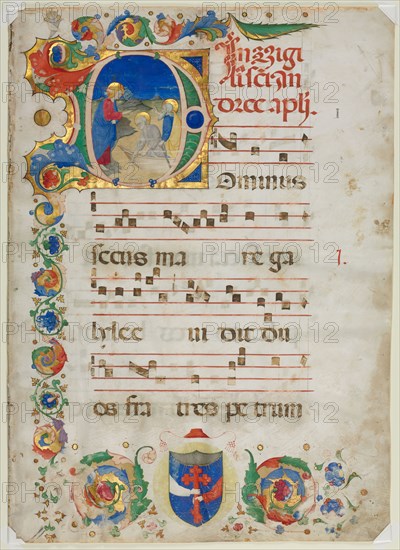 In vigi
lia sci An
dree apli.
I
DOminus
secus ma re ga
1.
lylee ui dit du
os fra tres petrum